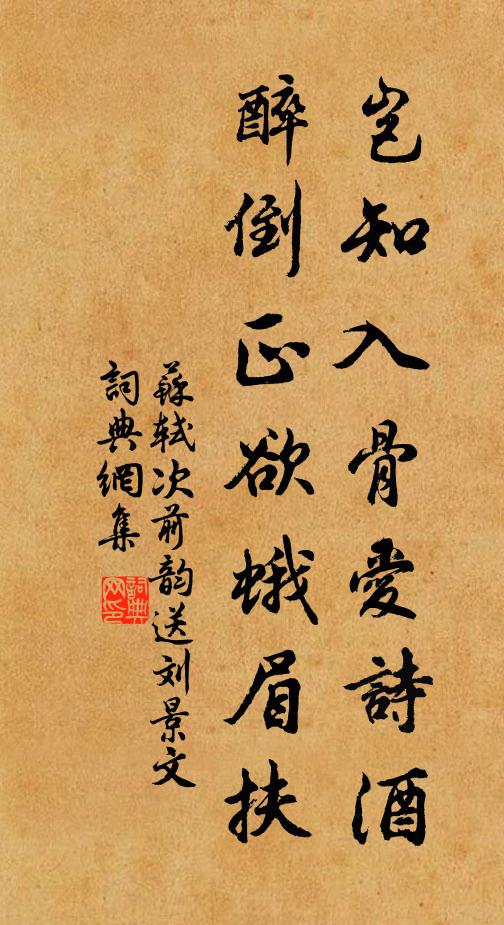 豈知入骨愛詩酒
醉倒正欲蛾眉扶
蘇軾次前韵送刘景文
詞典網集
詞典網印